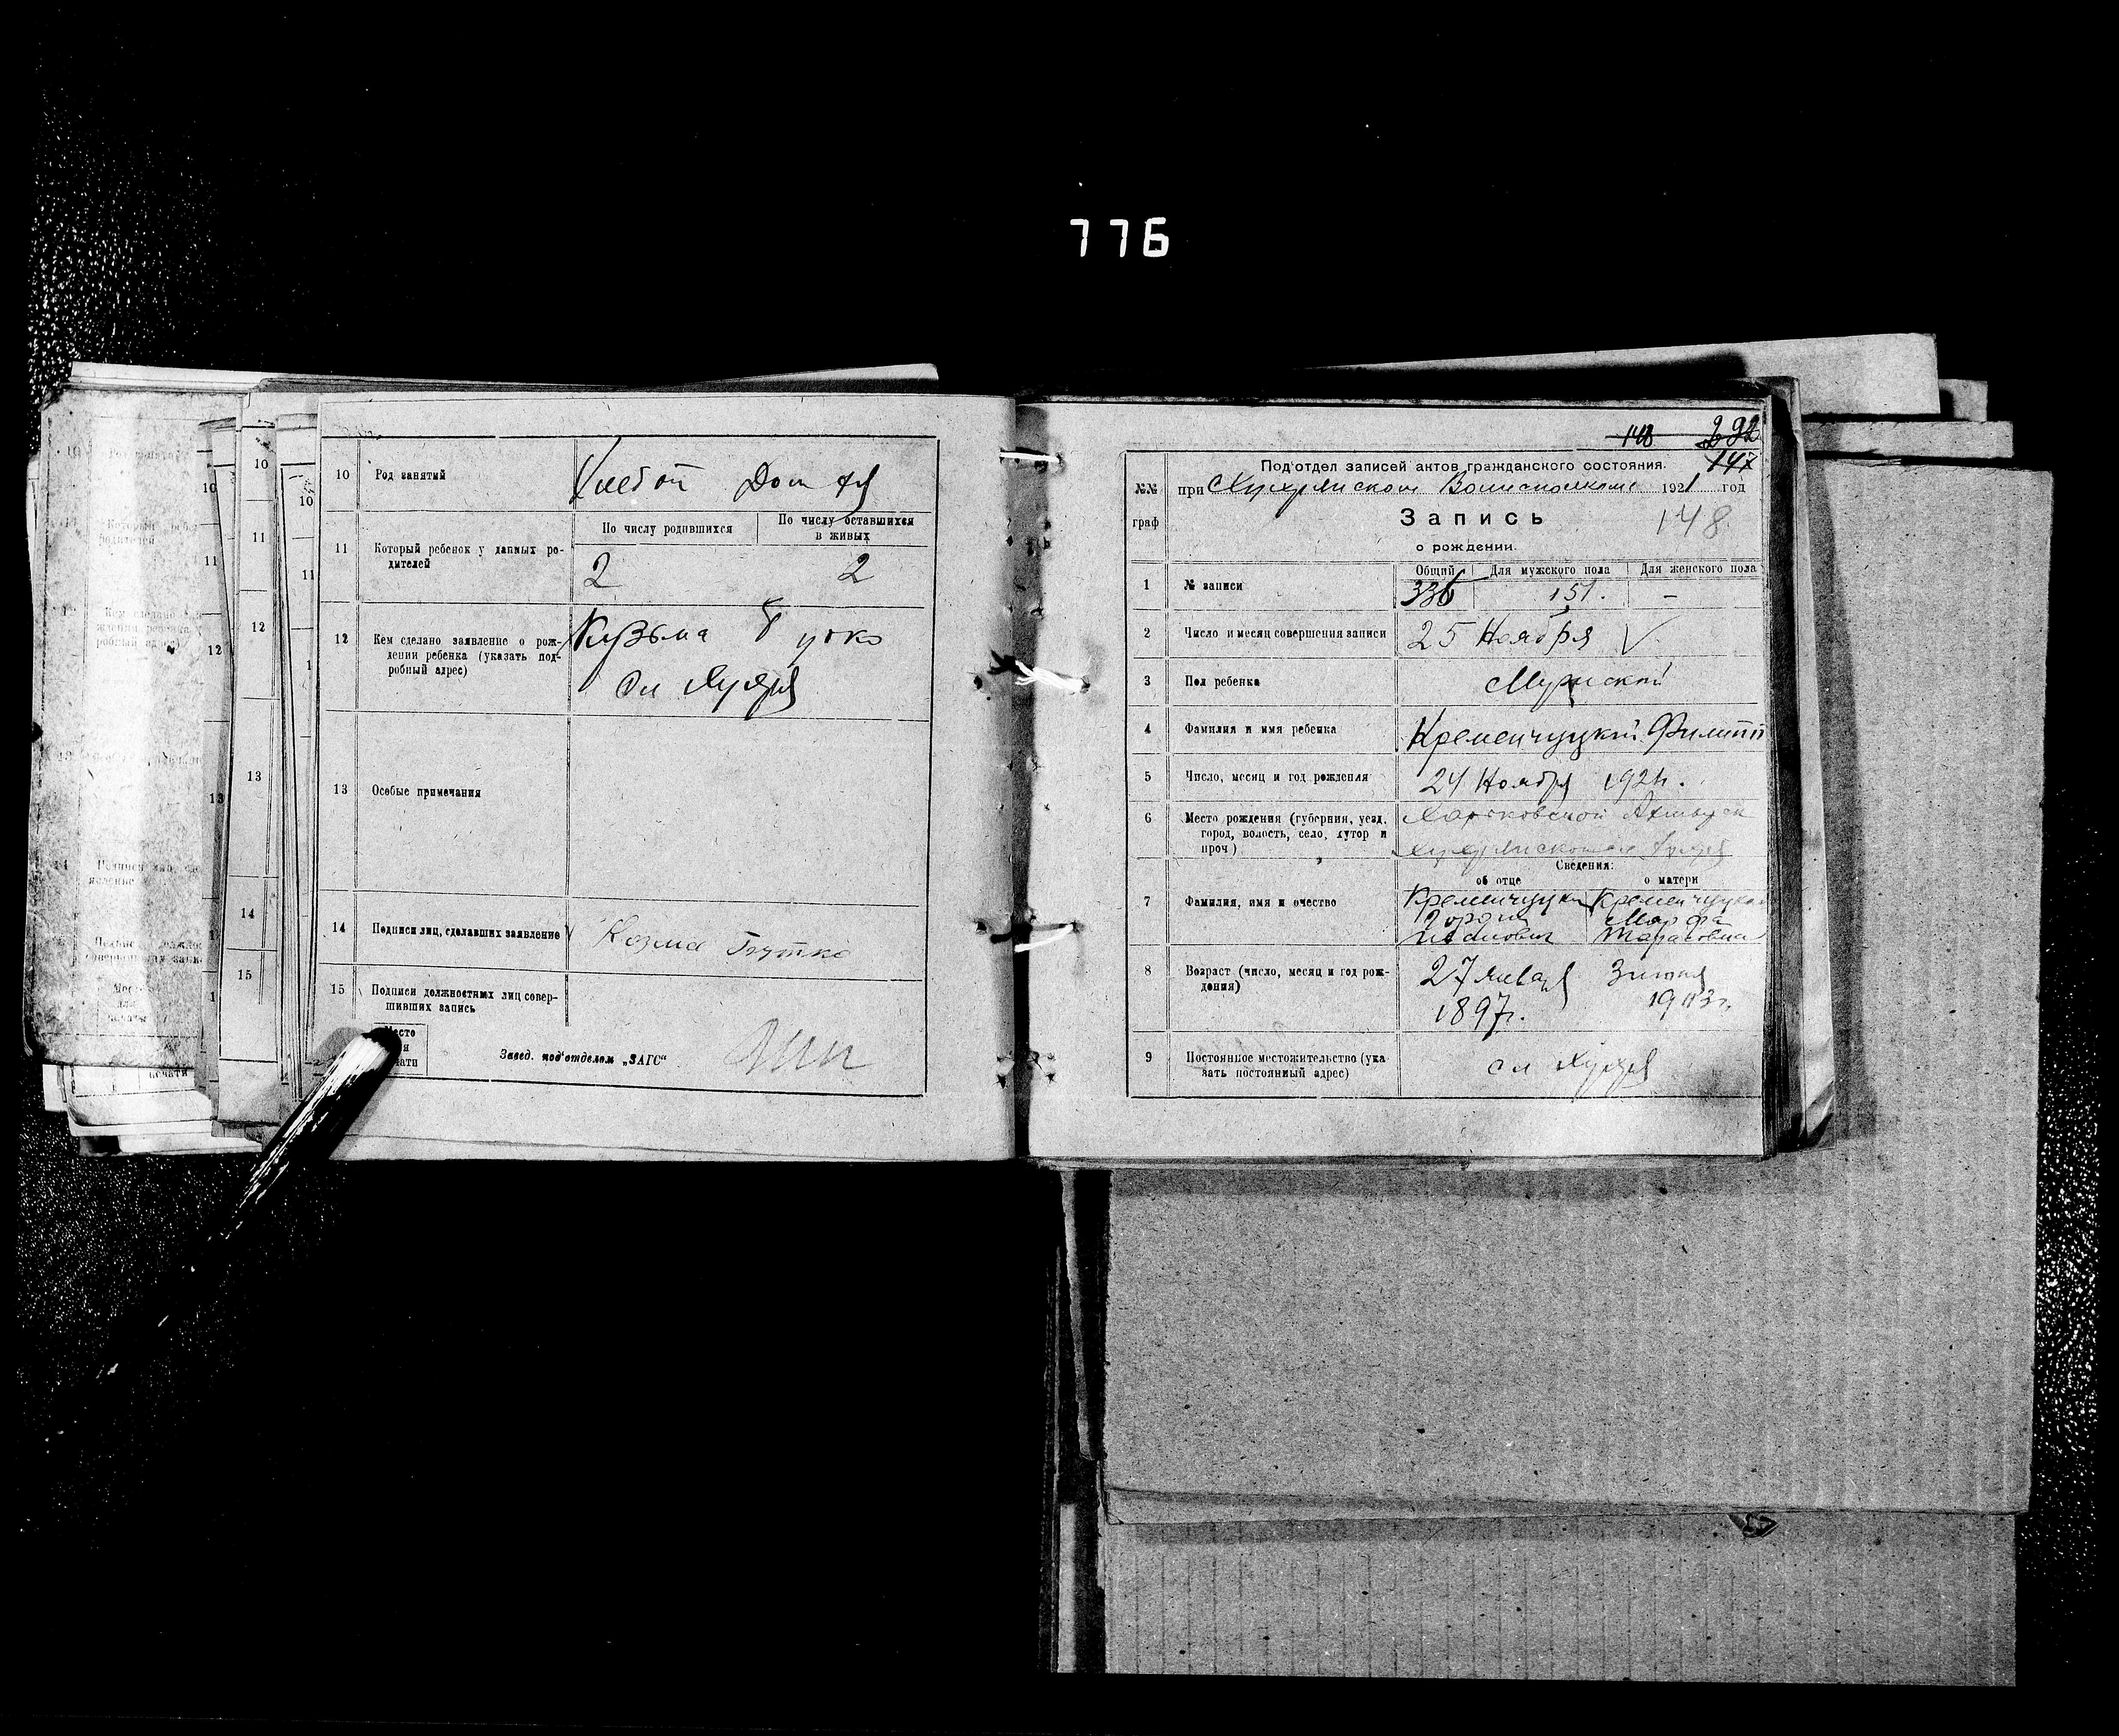 776
10 Род занятий
Хлебоп Дом хоз
11 Который ребенок у данных ро-
дителей
По числу родившихся
По числу оставшихся
в живых
2 2
12 Кем сделано заявление о рож-
дении ребенка (указать под-
робный адрес)
Кузьма Гутко
сл Хухря
13 Особые примечания
14 Подписи лиц, сделавших заявление
Козма Гутко
15 Подписи должностных лиц совер-
шивших запись
Место
для
печати
Завед. под'отделом „ЗАГС“
148 292
147
Под'отдел записей актов гражданского состояния.
№№
граф
при Хухрянском Волисполкоме 1921 год
Запись 148
о рождении.
1 № записи
Общий Для мужского пола Для женского пола
336 151. –
2 Число и месяц совершения записи
25 Ноября
3 Пол ребенка
Мужской
4 Фамилия и имя ребенка
Кременчуцкий Филипп
5 Число, месяц и год рождения
24 Ноября 1921г.
6 Место рождения (губерния, уезд,
город, волость, село, хутор и
проч)
Харьковской Ахтырск
Сведения:
об отце о матери
7 Фамилия, имя и очество
Кременчуцкий Гордей Иванович
Кременчуцкая Марфа Тарасовна
8 Возраст (число, месяц и год рож-
дения)
27 января
1897г.
1903г.
9 Постоянное местожительство (ука
зать постоянный адрес)
сл Хухря